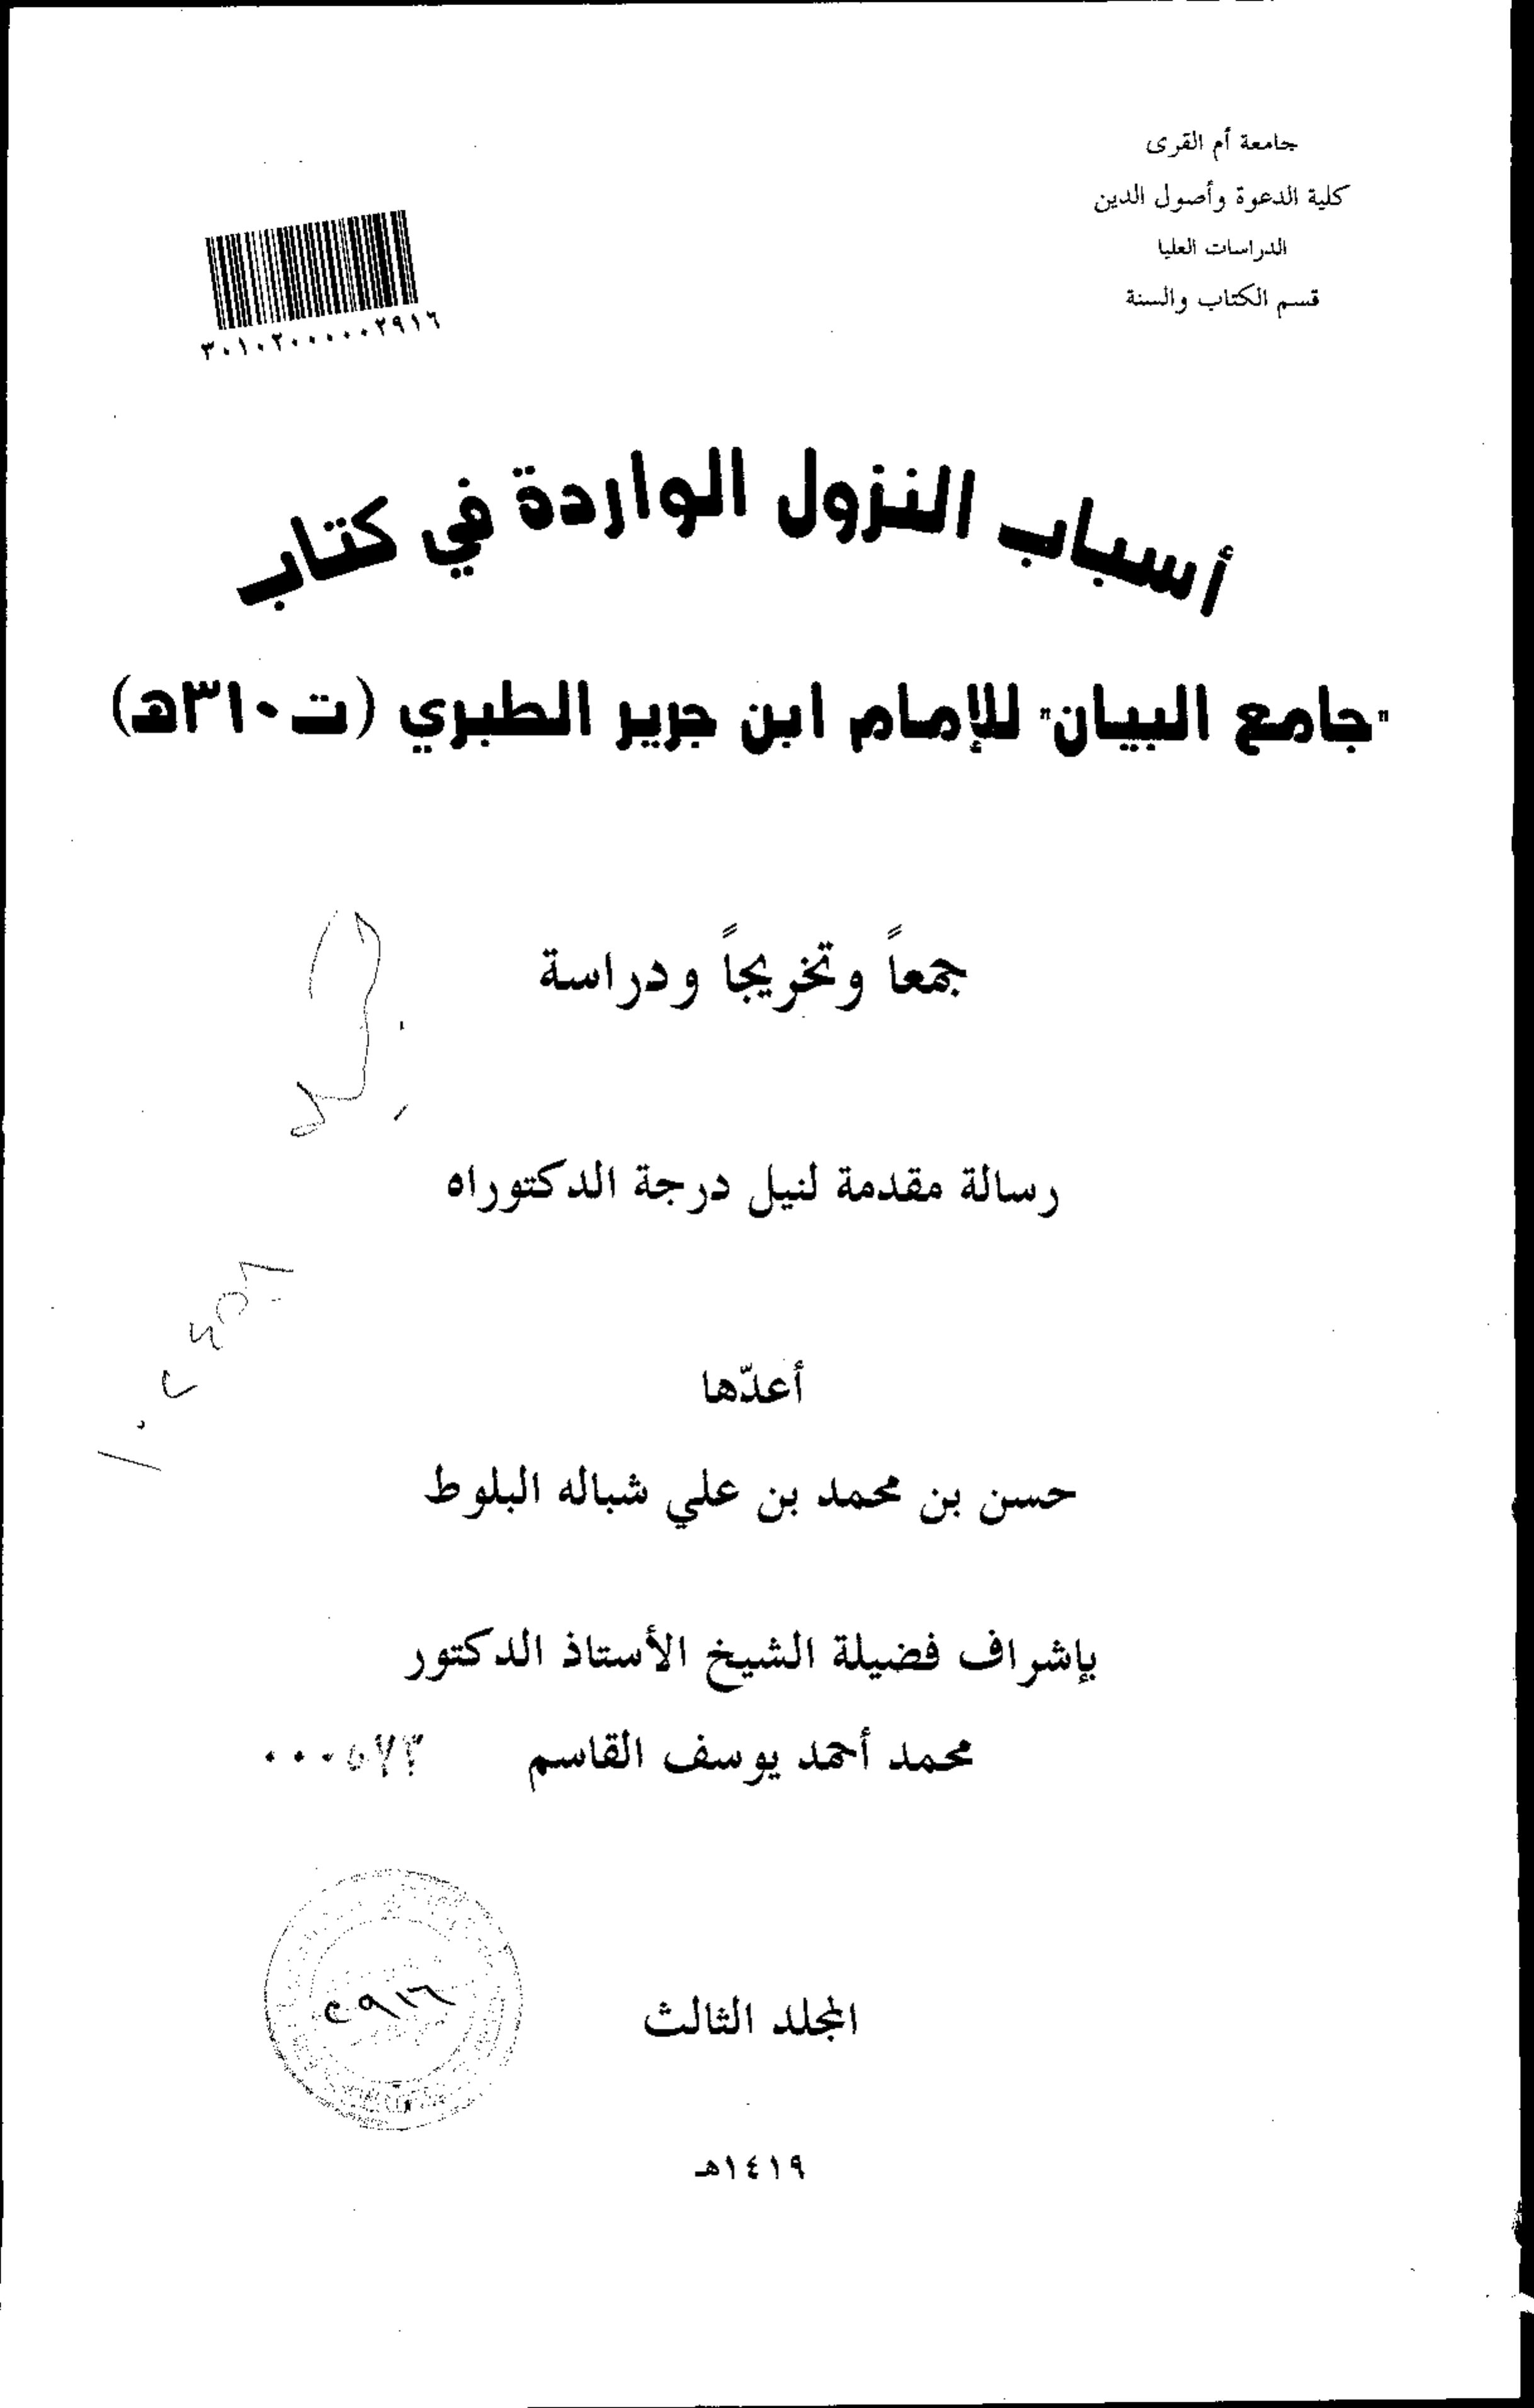 جامعة أم القرى
كلية الدعوة وأصول الدين
الدراسات العليا
قسم الكتاب والسنة
٣٠١٠٢٠٠٠٠٠٢٩١٦
أسباب النزول الواردة في كتاب
"جامع البيان" للإمام ابن جرير الطبري (ت٣١٠هـ)
جمعاً وتخريجاً ودراسة
رسالة مقدمة لنيل درجة الدكتوراه
أعدّها
حسن بن محمد بن علي شباله البلوط
بإشراف فضيلة الشيخ الأستاذ الدكتور
محمد أحمد يوسف القاسم
٢٩١٦
المجلد الثالث
١٤١٩هـ